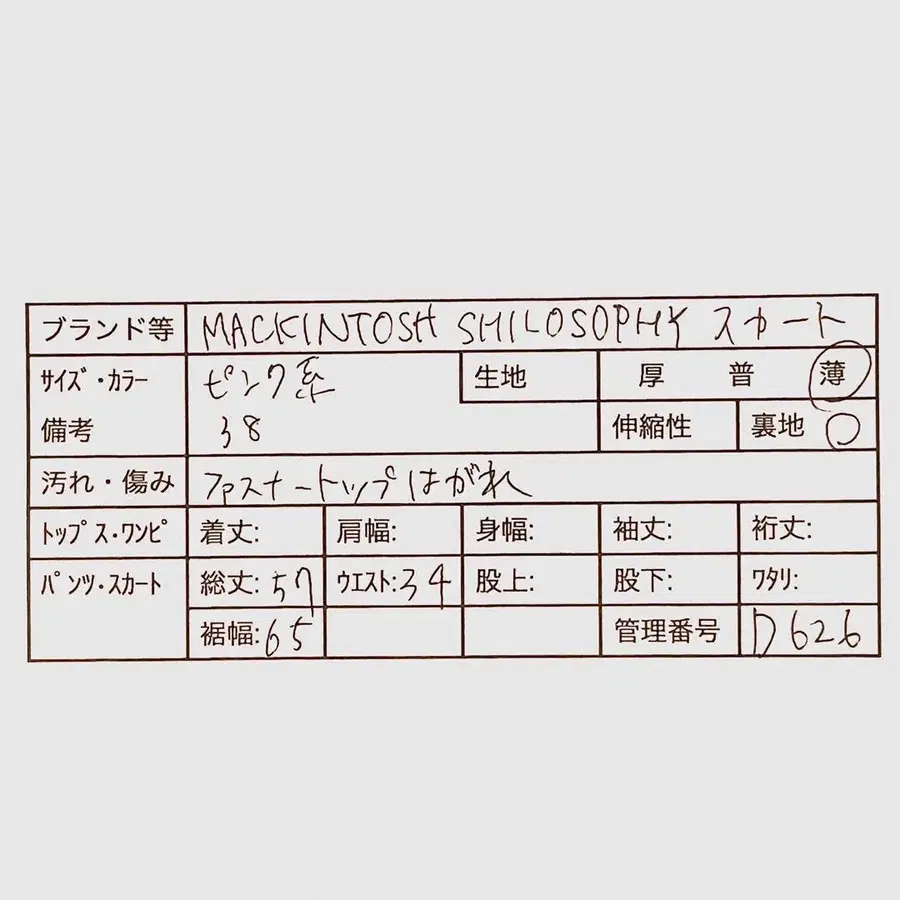 ブランド等 MACKINTOSH SHILOSOPHY スカート
サイズ・カラー ピンク系 生地 厚 普 薄
備考 38 伸縮性 裏地 ○
汚れ・傷み ファスナートップはがれ
トップス・ワンピ 着丈: 肩幅: 身幅: 袖丈: 裄丈:
パンツ・スカート 総丈:57 ウエスト:34 股上: 股下: ワタリ:
裾幅:65 管理番号 D626